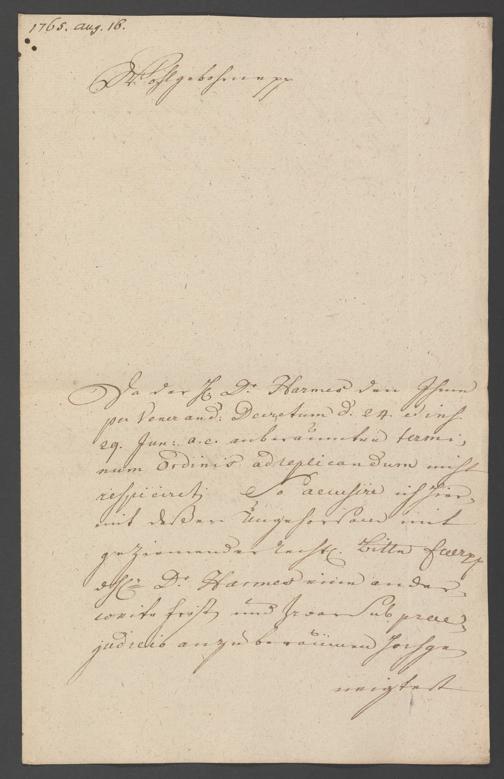 1765. aug. 16.
Wohlgebohrne pp
Da der H. Dr. Harmes den Ihm
per Venerand: Decretum d. 24. et ins.
29. Jun: a. c. anberaumten termi,
num Ordinis ad replicandum nicht
respiciret; So accusire ich hier,
mit deßen Ungehorsam mit
geziemender rechtl. Bitte
Dr. Harmes eine ander,
weite frist und zwar sub prae,
judicio anzuberaumen hochge,
neigtest